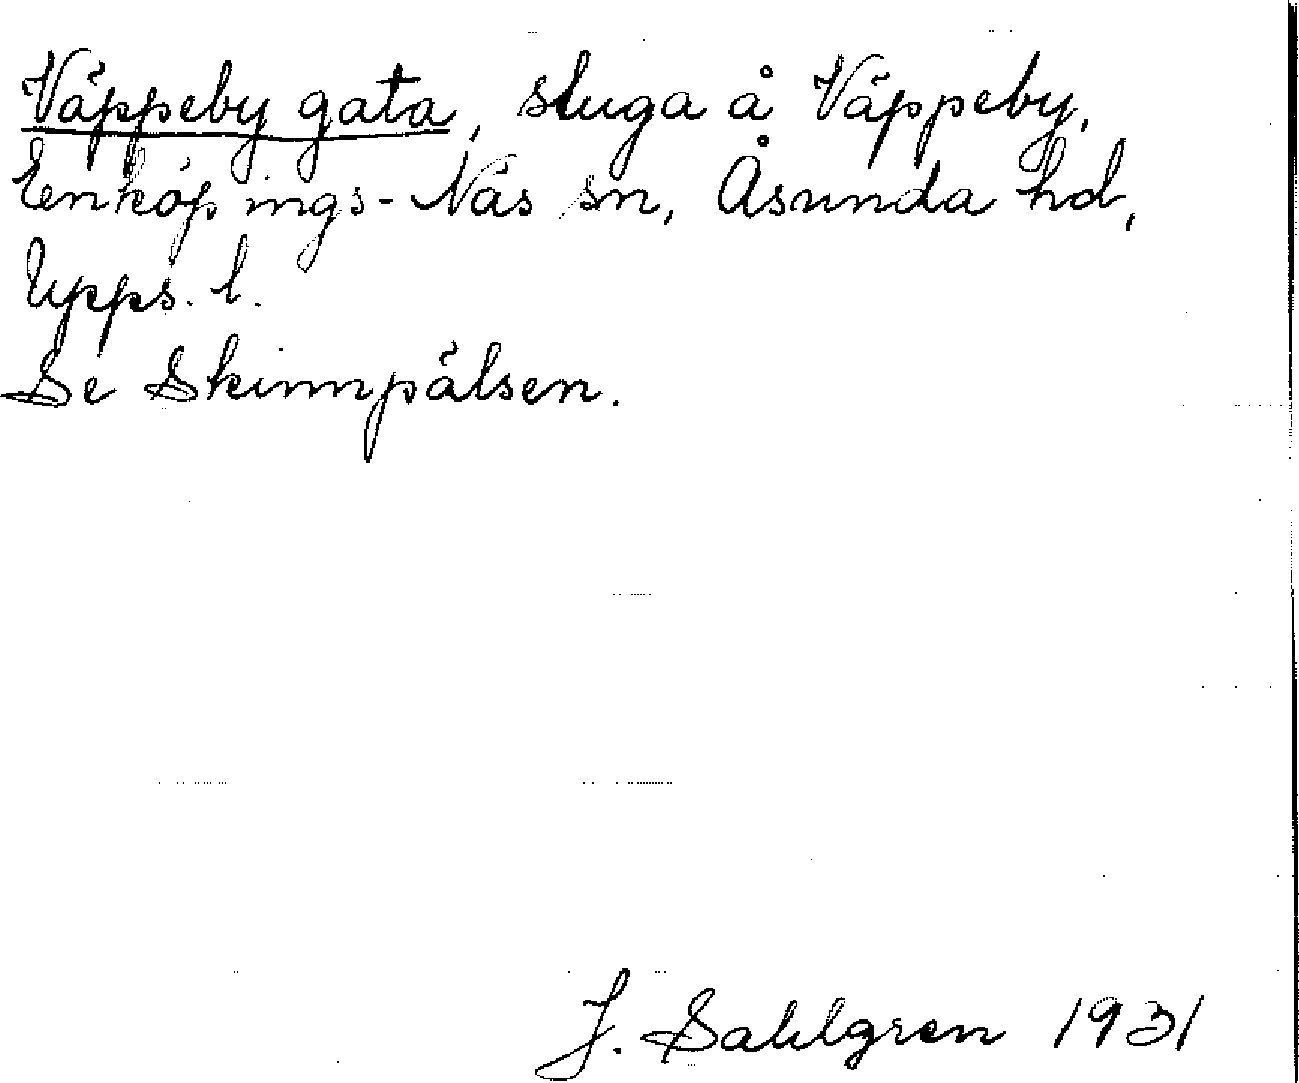 Väppeby gata, stuga å Väppeby,
Enköpings-Näs sn, Åsunda hd,
Upps. l.
Se Skinnpälsen.
J. Sahlgren 1931